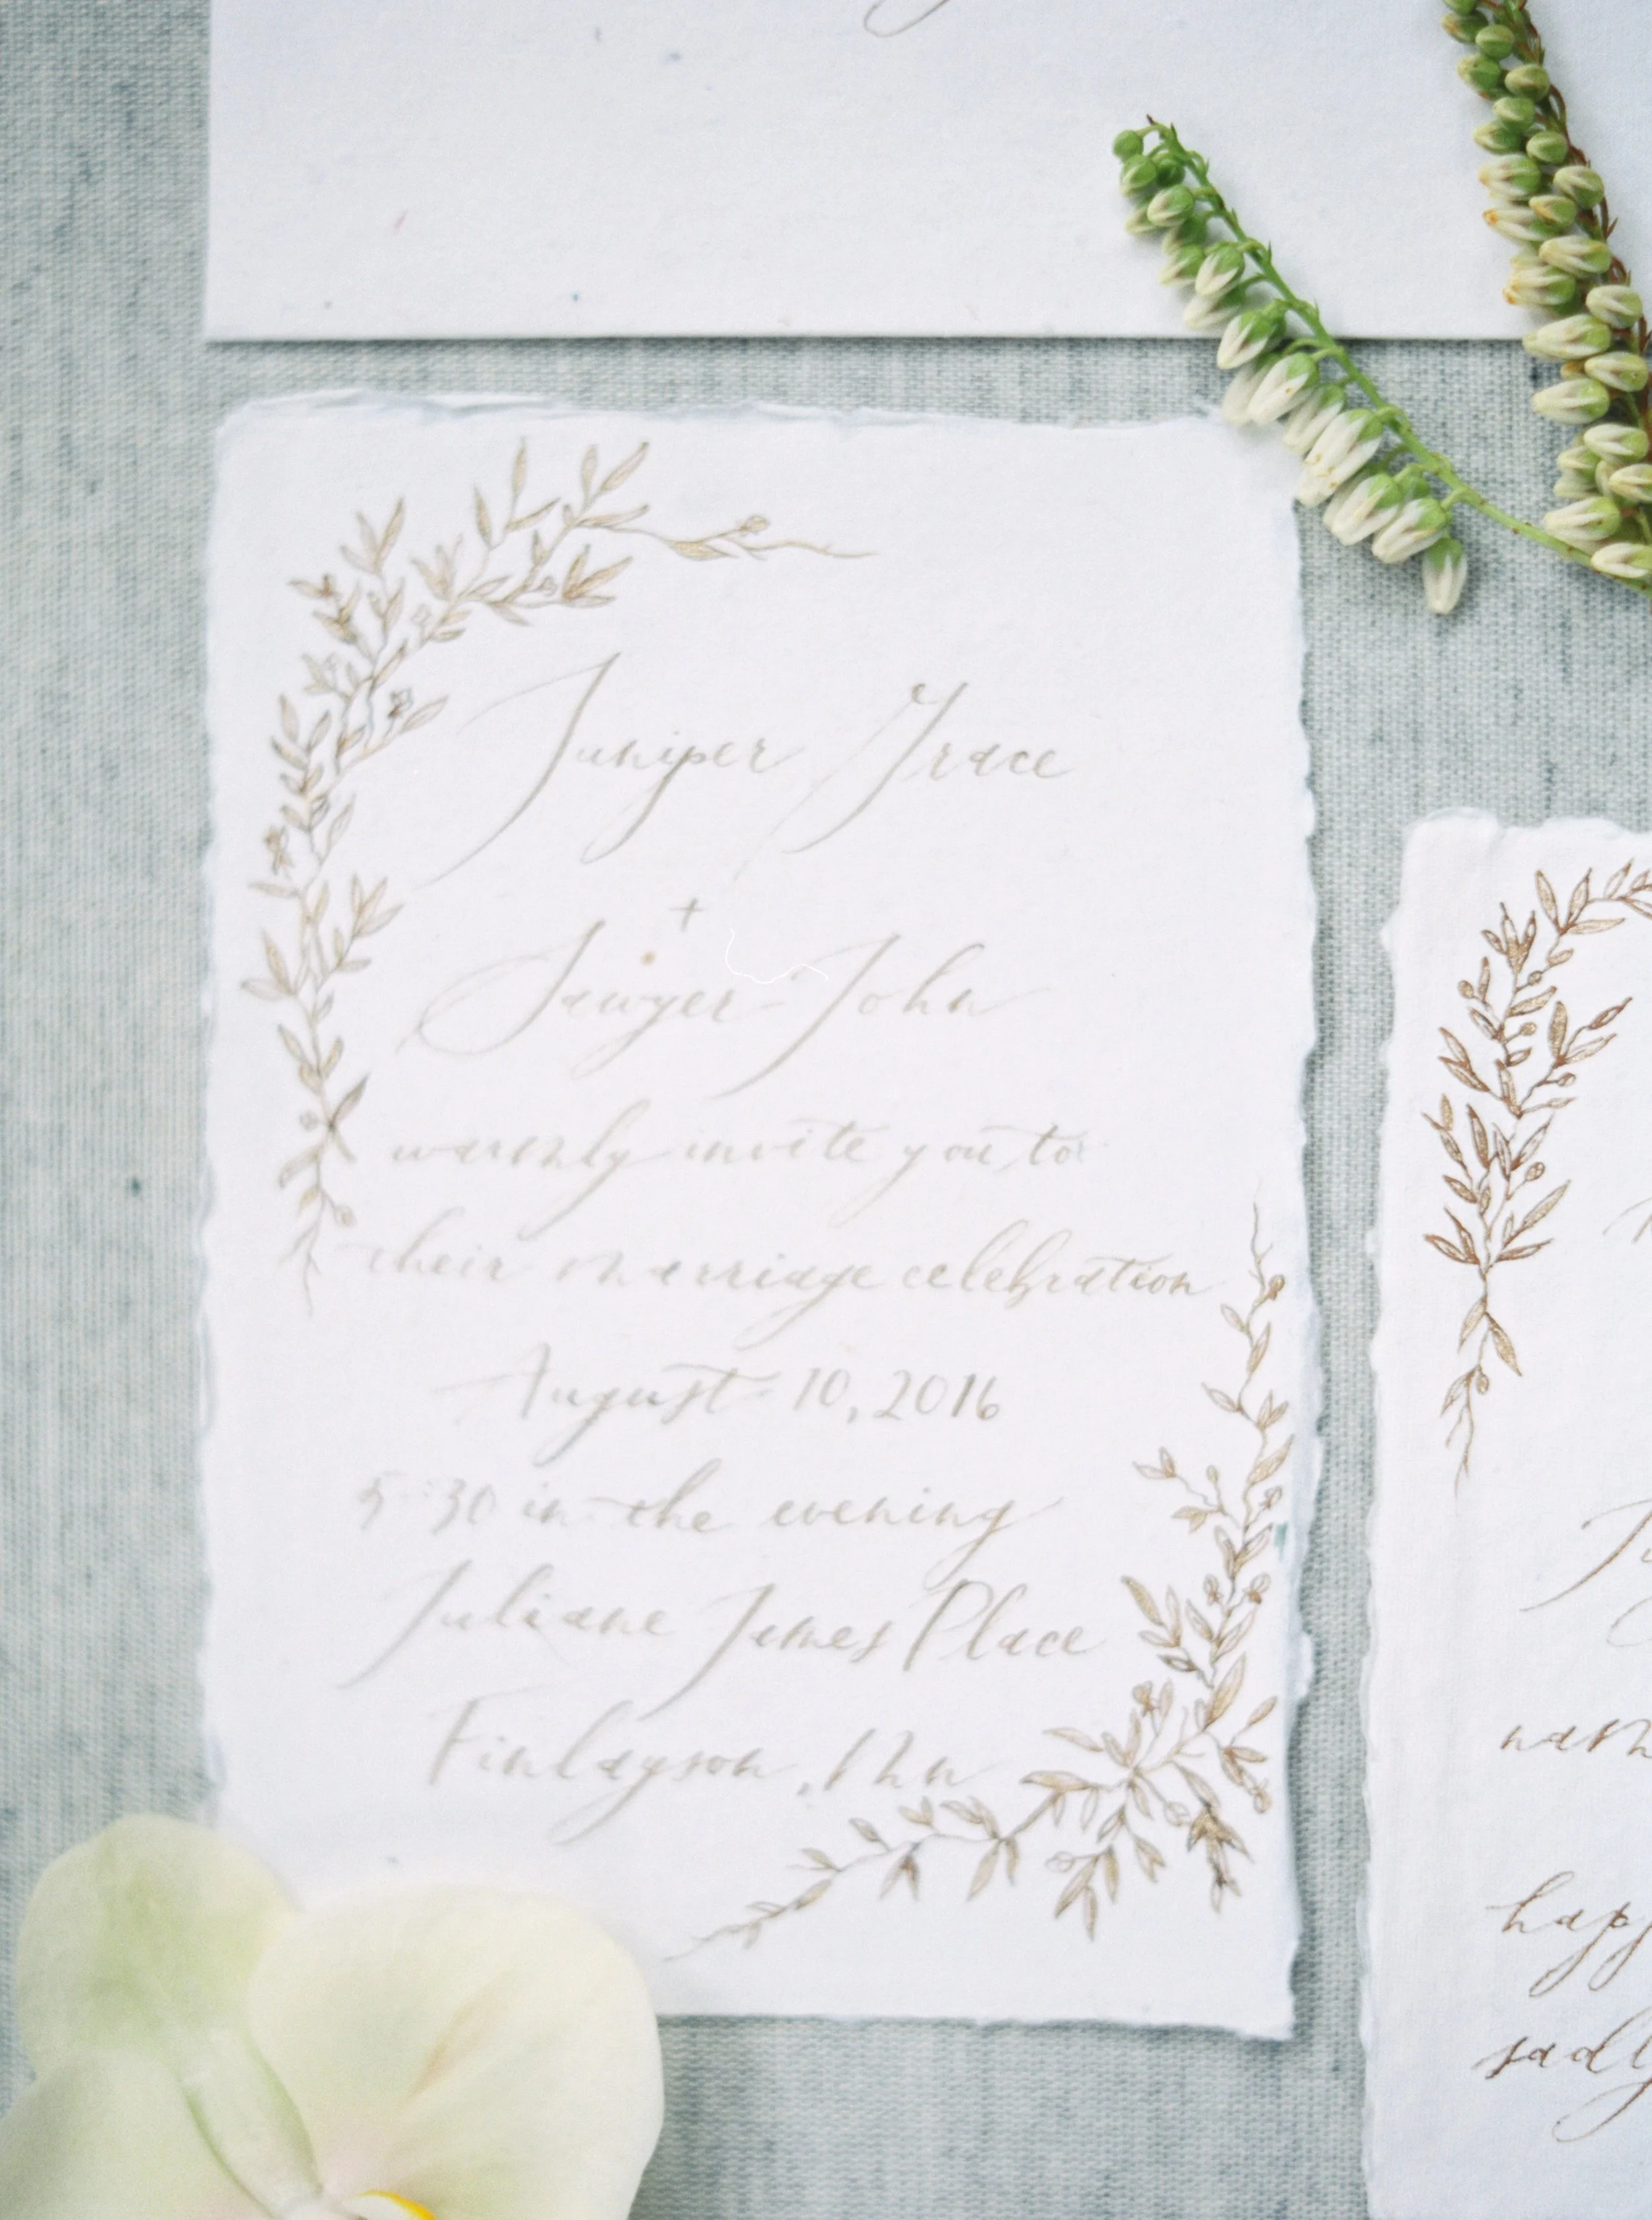 Juniper Grace
+
Sawyer-John
warmly invite you to
their marriage celebration
August 10, 2016
5:30 in the evening
Juliane James Place
Finlayson, Mn
happ
sadly